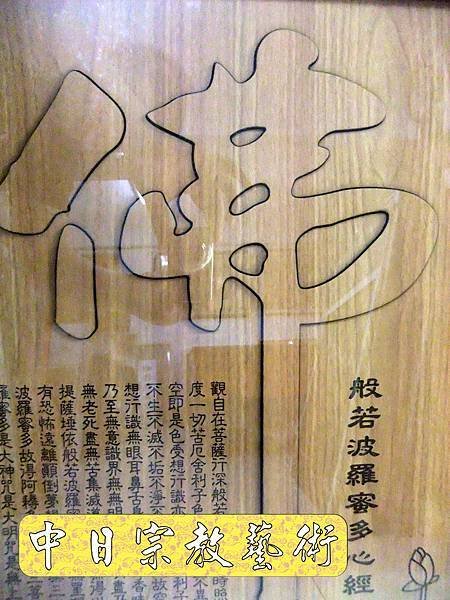 佛
般若波羅蜜多心經
觀自在菩薩行深般若
時照
度一切苦厄舍利子色
不異
空即是色受想行識亦
利子
不生不滅不垢不淨不
想行識無眼耳鼻舌身
香味
乃至無意識界無無明
無老死盡無苦集滅道
提薩埵依般若波羅蜜
有恐怖遠離顛倒夢
波羅蜜多故得阿耨
羅蜜多是大神咒是大明咒是無上
中日宗教藝術